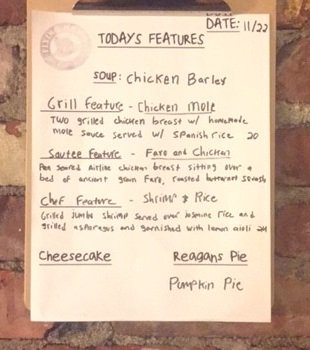 DATE: 11/22
TODAYS FEATURES
SOUP: Chicken Barley
Grill Feature - Chicken Mole
TWO grilled chicken breast w/ homemade
mole sauce served w/ Spanish rice 20
Sautee Feature - Faro and Chicken
Pan Seared Airline chicken breast sitting over a
bed of ancient grain Faro, roasted butternut squash
Chef Feature - Shrimp & Rice
Grilled Jumbo shrimp served over Jasmine rice and
grilled asparagus and garnished with lemon aioli 24
Cheesecake Reagans Pie
Pumpkin Pie